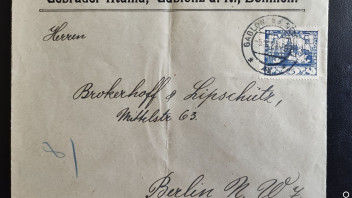 Gebrüder Heuma, Gablonz a. N., Böhmen.
Herren
Brokerhoff & Lipschütz,
Mittelstr 63.
Berlin N. W. 7